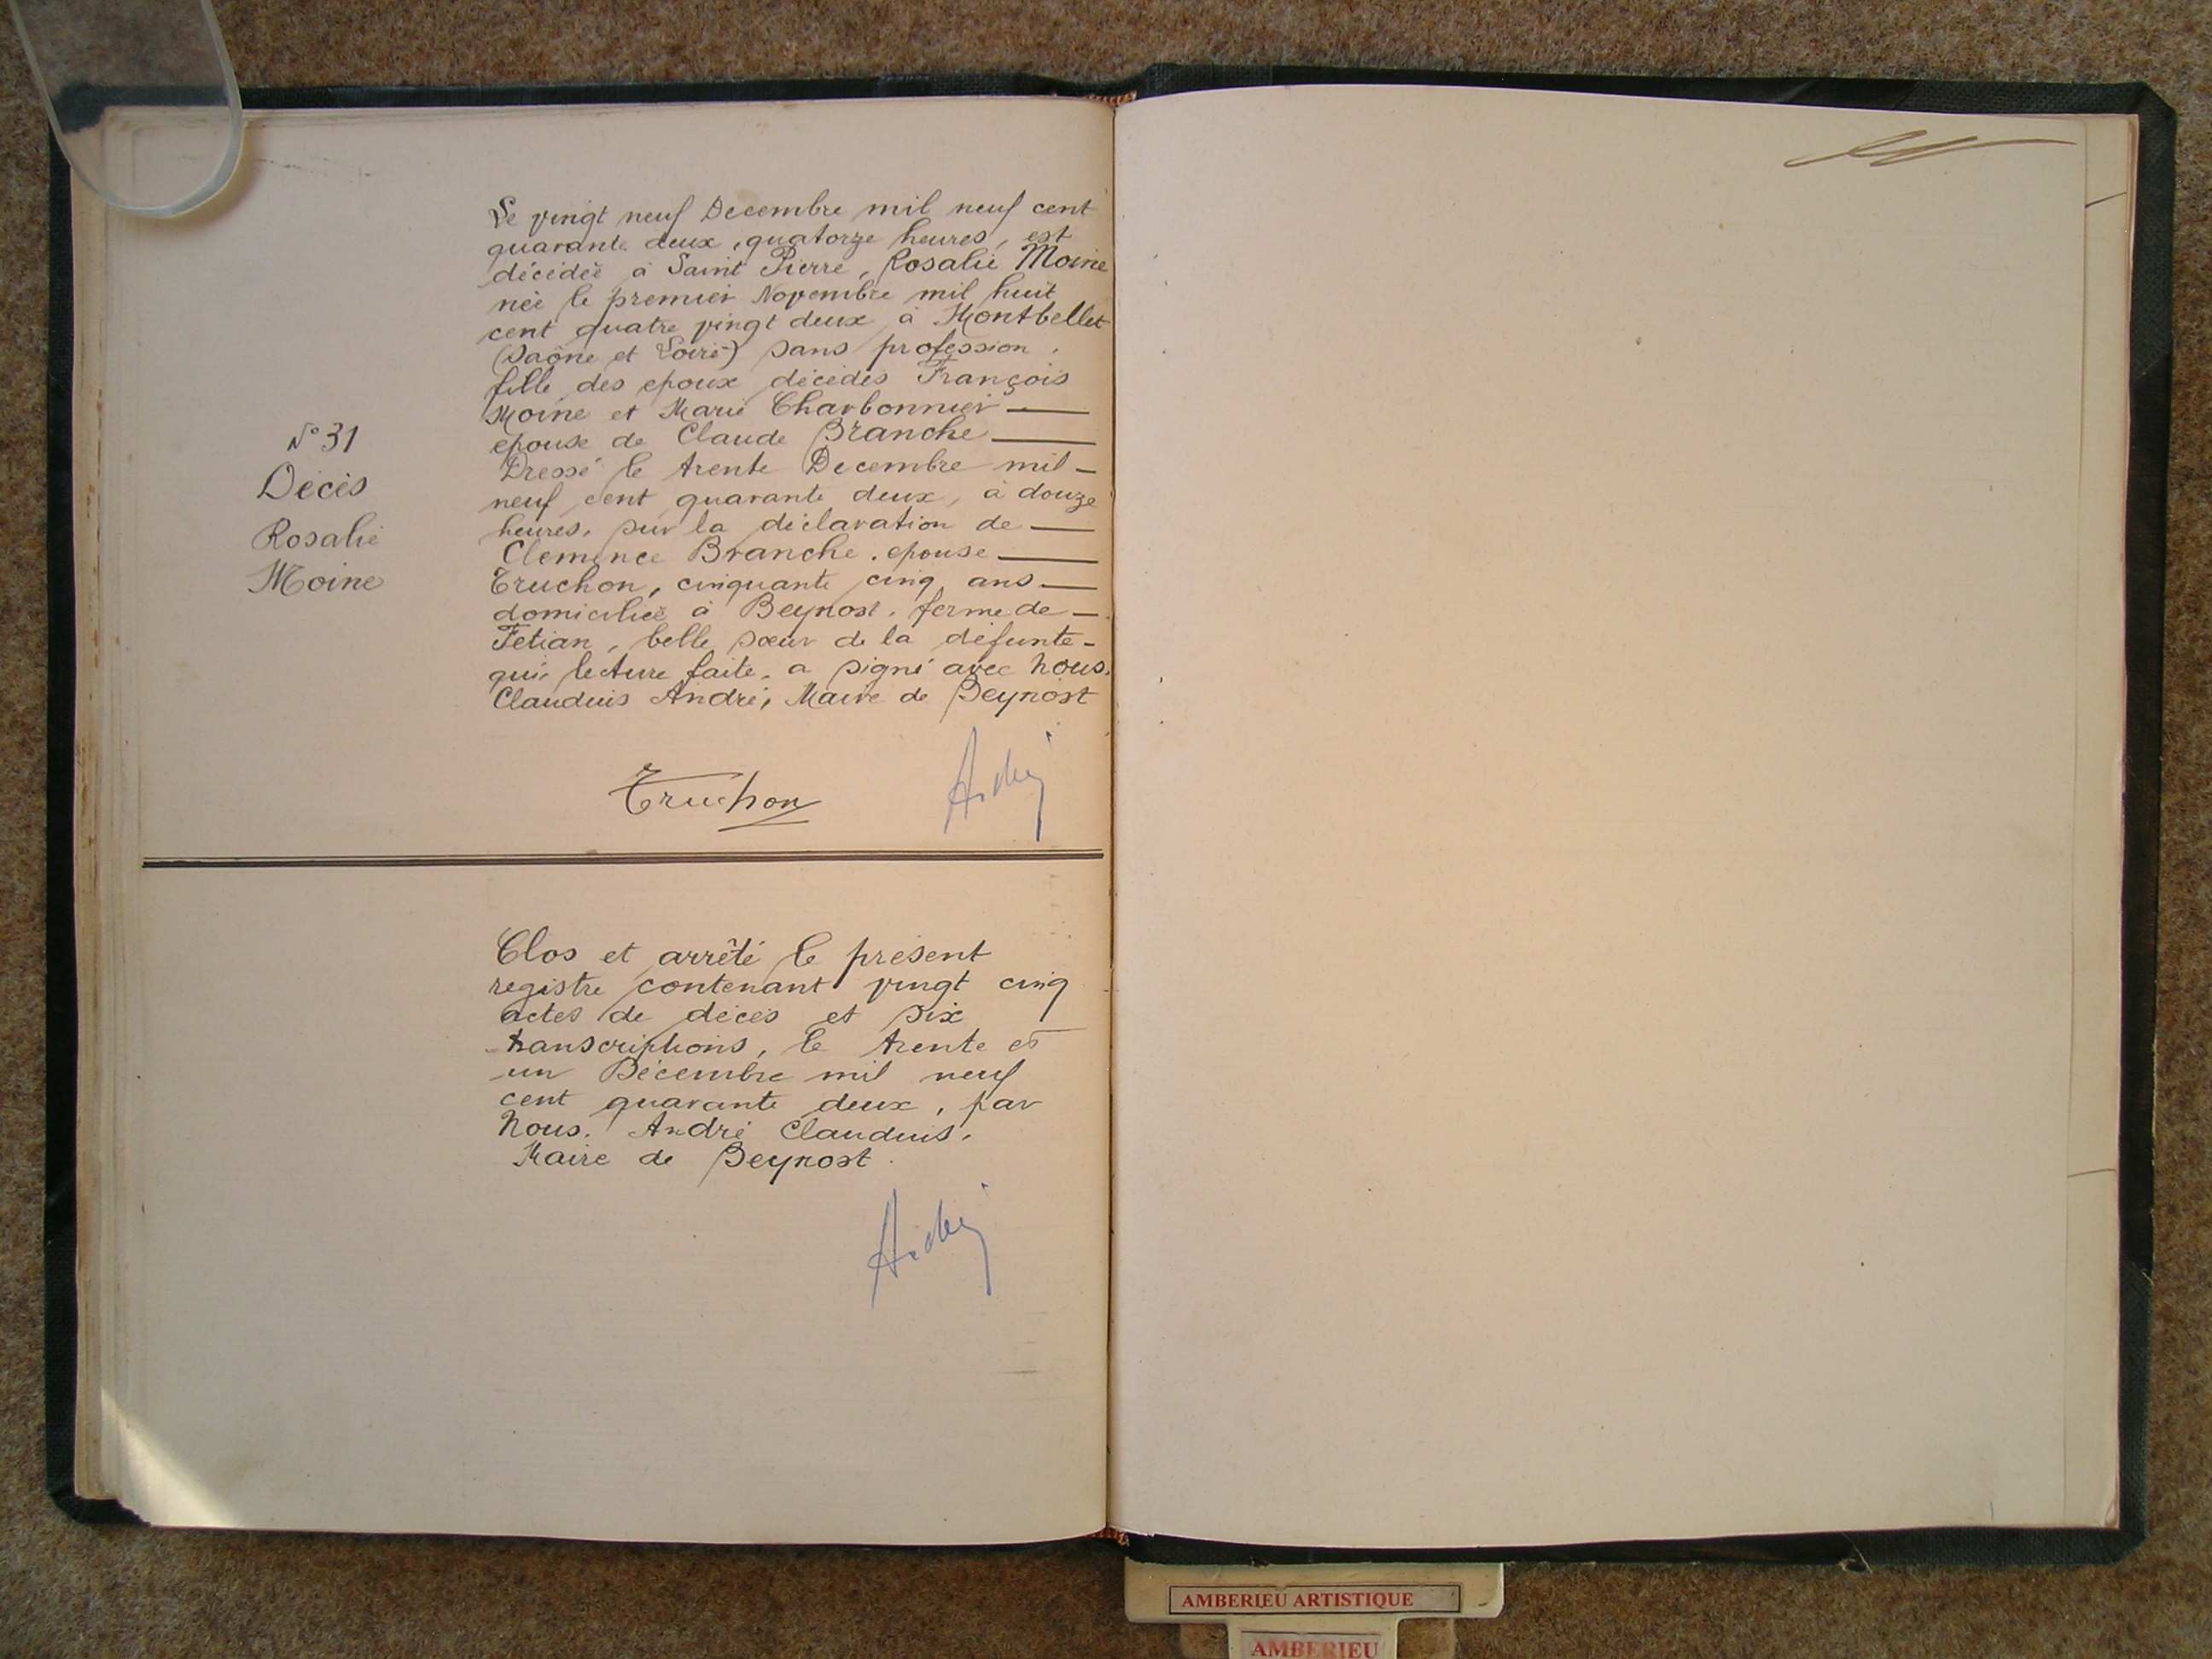 Le vingt neuf Decembre mil neuf cent
quarante deux, quatorze heures, est
décédée à Saint Pierre, Rosalie Moine
née le premier Novembre mil huit
cent quatre vingt deux à Montbellet
(Saône et Loire) sans profession,
fille des epoux décédés François
Moine et Marie Charbonnier —
epouse de Claude Branche —
Dressé le trente Decembre mil —
neuf cent quarante deux, à douze
heures, sur la déclaration de —
Clemence Branche, epouse —
Truchon, cinquante cinq ans —
domiciliée à Beynost, ferme de —
Fetian, belle sœur de la défunte -
qui, lecture faite, a signé avec Nous,
Claudius André, Maire de Beynost
N° 31
Décès
Rosalie
Moine
Truchon
André
Clos et arrêté le présent
registre contenant vingt cinq
actes de décès et six
transcriptions, le trente et
un Décembre mil neuf
cent quarante deux, par
Nous, André Claudius,
Maire de Beynost.
André
AMBERIEU ARTISTIQUE
AMBERIEU